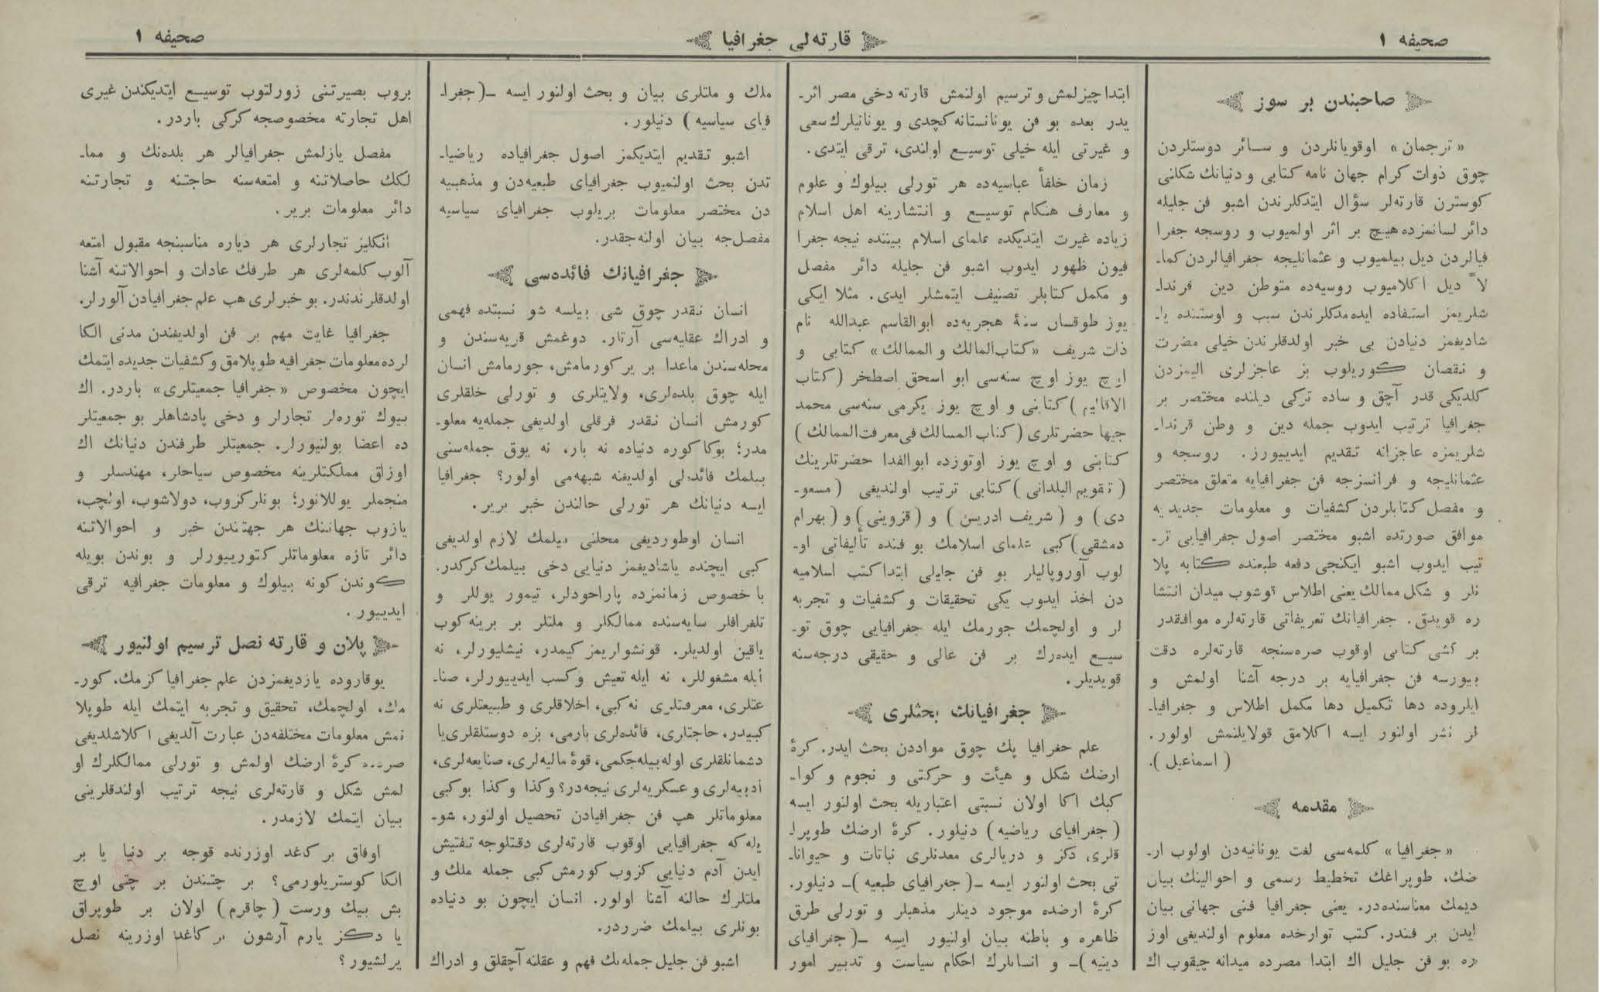 صحیفه ١
قارته‌لی جغرافیا
صحیفه ١
صاحبندن بر سوز
«ترجمان» اوقویانلردن و سائر دوستلردن
چوق ذوات کرام جهان نامه کتابی و دنیانك شکلنی
کوسترن قارته‌لر سؤال ایتدکلرندن اشبو فن جلیله
دائر لسانمزده هیچ بر اثر اولمیوب و روسجه جغرا
فیالردن دیل بیلمیوب و عثمانلیجه جغرافیالردن کما۔
لاً دیل اکلامیوب روسیه‌ده متوطن دین قرندا۔
شلریمز استفاده ایده‌مدکلرندن سبب و اوستنده یا۔
شادیغمز دنیادن بی خبر اولدقلرندن خیلی مضرت
و نقصان کوریلوب بز عاجزلری الیمزدن
کلدیکی قدر آچق و ساده ترکی دیلنده مختصر بر
جغرافیا ترتیب ایدوب جمله دین و وطن قرندا۔
شلریمزه عاجزانه تقدیم ایدییورز. روسجه و
عثمانلیجه و فرانسزجه فن جغرافیایه متعلق مختصر
و مفصل کتابلردن کشفیات و معلومات جدیدیه
موافق صورتده اشبو مختصر اصول جغرافیایی تر۔
تیب ایدوب اشبو ایکنجی دفعه طبعنده کتابه پلا
نلر و شکل ممالك یعنی اطلاس قوشوب میدان انتشا
ره قویدق. جغرافیانك تعریفاتی قارته‌لره موافقدر
بر کشی کتابی اوقوب صره‌سنجه قارته‌لره دقت
بیورسه فن جغرافیایه بر درجه آشنا اولمش و
ایلروده دها تکمیل دها مکمل اطلاس و جغرافیا۔
لر نشر اولنور ایسه اکلامق قولایلنمش اولور.
(اسماعیل).
مقدمه
«جغرافیا» کلمه‌سی لغت یونانیه‌دن اولوب ار۔
ضك، طوپراغك تخطیط رسمی و احوالینك بیان
دیمك معناسنده‌در. یعنی جغرافیا فنی جهانی بیان
ایدن بر فندر. کتب تواریخده معلوم اولندیغی اوز
ره بو فن جلیل اك ابتدا مصرده میدانه چیقوب اك
ابتدا چیزلمش و ترسیم اولنمش قارته دخی مصر اثر۔
یدر بعده بو فن یونانستانه کچدی و یونانیلرك سعی
و غیرتی ایله خیلی توسیع اولندی، ترقی ایتدی.
زمان خلفأ عباسیه‌ده هر تورلی بیلوك و علوم
و معارف هنکام توسیع و انتشارینه اهل اسلام
زیاده غیرت ایتدیکده علمای اسلام بیننده نیجه جغرا
فیون ظهور ایدوب اشبو فن جلیله دائر مفصل
و مکمل کتابلر تصنیف ایتمشلر ایدی. مثلا ایکی
یوز طوقسان سنۀ هجریه‌ده ابوالقاسم عبدالله نام
ذات شریف «کتاب المسالك و الممالك» کتابی و
اوچ یوز اوچ سنه‌سی ابو اسحق اصطخر (کتاب
الاقالیم) کتابنی و اوچ یوز یکرمی سنه‌سی محمد
جیها حضرتلری (کتاب المسالك فی معرفت الممالك)
کتابنی و اوچ یوز اوتوزده ابوالفدا حضرتلرینك
(تقویم البلدانی) کتابی ترتیب اولندیغی (مسعو۔
دی) و (شریف ادریس) و (قزوینی) و (بهرام
دمشقی) کبی علمای اسلامك بو فنده تألیفاتی او۔
لوب آوروپالیلر بو فن جلیلی ابتدا کتب اسلامیه
دن اخذ ایدوب یکی تحقیقات و کشفیات و تجربه
لر و اولچمك جورمك ایله جغرافیایی چوق تو۔
سیع ایده‌رك بر فن عالی و حقیقی درجه‌سنه
قویدیلر.
جغرافیانك بحثلری
علم جغرافیا پك چوق موادّدن بحث ایدر. کرۀ
ارضك شکل و هیئت و حرکتی و نجوم و کوا۔
کبك اکا اولان نسبتی اعتباریله بحث اولنور ایسه
(جغرافیای ریاضیه) دنیلور. کرۀ ارضك طوپرا۔
قلری، دکز و دریالری معدنلری نباتات و حیوانا۔
تی بحث اولنور ایسه ـ(جغرافیای طبعیه)ـ دنیلور.
کرۀ ارضده موجود دینلر مذهبلر و تورلی طرق
ظاهره و باطنه بیان اولنیور ایسه ـ(جغرافیای
دینیه)ـ و انسانلرك احکام سیاست و تدبیر امور
ملك و ملتلری بیان و بحث اولنور ایسه ـ(جغرا۔
فیای سیاسیه) دنیلور.
اشبو تقدیم ایتدیکمز اصول جغرافیاده ریاضیا۔
تدن بحث اولنمیوب جغرافیای طبعیه‌دن و مذهبیه
دن مختصر معلومات بریلوب جغرافیای سیاسیه
مفصل‌جه بیان اولنه‌جقدر.
جغرافیانك فائده‌سی
انسان نقدر چوق شی بیلسه شو نسبتده فهمی
و ادراك عقلیه‌سی آرتار. دوغمش قریه‌سندن و
محله‌سندن ماعدا بر یر کورمامش، جورمامش انسان
ایله چوق بلده‌لری، ولایتلری و تورلی خلقلری
کورمش انسان نقدر فرقلی اولدیغی جمله‌یه معلو۔
مدر؛ بوکا کوره دنیاده نه بار، نه یوق جمله‌سنی
بیلمك فائدلی اولدیغنه شبهه‌می اولور؟ جغرافیا
ایسه دنیانك هر تورلی حالندن خبر بریر.
انسان اوطوردیغی محلنی بیلمك لازم اولدیغی
کبی ایچنده یاشادیغمز دنیایی دخی بیلمك کرکدر.
با خصوص زمانمزده پاراخودلر، تیمور یوللر و
تلغرافلر سایه‌سنده ممالکلر و ملتلر بر برینه کوب
یاقین اولدیلر. قونشولریمز کیمدر، نیشلیورلر، نه
ایله مشغوللر، نه ایله تعیش و کسب ایدییورلر، صنا۔
عتلری، معرفتلری نه کبی، اخلاقلری و طبیعتلری نه
کبیدر، حاجتلری، فائده‌لری بارمی، بزه دوستلقلری یا
دشمانلقلری اوله بیله‌جکمی، قوۀ مالیه‌لری، صنایعه‌لری،
ادبیه‌لری و عسکریه‌لری نیجه‌در؟ وکذا وکذا بو کبی
معلوماتلر هپ فن جغرافیادن تحصیل اولنور، شو۔
یله که جغرافیایی اوقوب قارته‌لری دقتلوجه تفتیش
ایدن آدم دنیایی کزوب کورمش کبی جمله ملك و
ملتلرك حالنه آشنا اولور. انسان ایچون بو دنیاده
بونلری بیلمك ضرردر.
اشبو فن جلیل جمله‌نك فهم و عقلنه آچقلق و ادراك
بروب بصیرتنی زورلتوب توسیع ایتدیکندن غیری
اهل تجارته مخصوصجه کرکی باردر.
مفصل یازلمش جغرافیالر هر بلده‌نك و مما۔
لکك حاصلاتنه و امتعه‌سنه حاجتنه و تجارتنه
دائر معلومات بریر.
انکلیز تجارلری هر دیاره مناسبنجه مقبول امتعه
آلوب کلمه‌لری هر طرفك عادات و احوالاتنه آشنا
اولدقلرندندر. بو خبرلری هب علم جغرافیادن آلورلر.
جغرافیا غایت مهم بر فن اولدیغندن مدنی الکا
لرده معلومات جغرافیه طوپلامق و کشفیات جدیده ایتمك
ایچون مخصوص «جغرافیا جمعیتلری» باردر. اك
بیوك توره‌لر تجارلر و دخی پادشاهلر بو جمعیتلر
ده اعضا بولنیورلر. جمعیتلر طرفندن دنیانك اك
اوزاق مملکتلرینه مخصوص سیاحلر، مهندسلر و
منجملر یوللانور؛ بونلر کزوب، دولاشوب، اولچب،
یازوب جهاننك هر جهتندن خبر و احوالاتنه
دائر تازه معلوماتلر کتورییورلر و بوندن بویله
کوندن کونه بیلوك و معلومات جغرافیه ترقی
ایدییور.
پلان و قارته نصل ترسیم اولنیور
یوقاروده یازدیغمزدن علم جغرافیا کزمك، کور۔
مك، اولچمك، تحقیق و تجربه ایتمك ایله طوپلا
نمش معلومات مختلفه‌دن عبارت آلدیغی اکلاشلدیغی
صرده کرۀ ارضك اولمش و تورلی ممالکلرك او
لمش شکل و قارته‌لری نیجه ترتیب اولندقلرینی
بیان ایتمك لازمدر.
اوفاق بر کاغد اوزرنده قوجه بر دنیا یا بر
الکا کوستریلورمی؟ بر چتندن بر چتی اوچ
بش بیك ورست (چاقرم) اولان بر طوپراق
یا دکز یارم آرشون بر کاغد اوزرینه نصل
یرلشیور؟